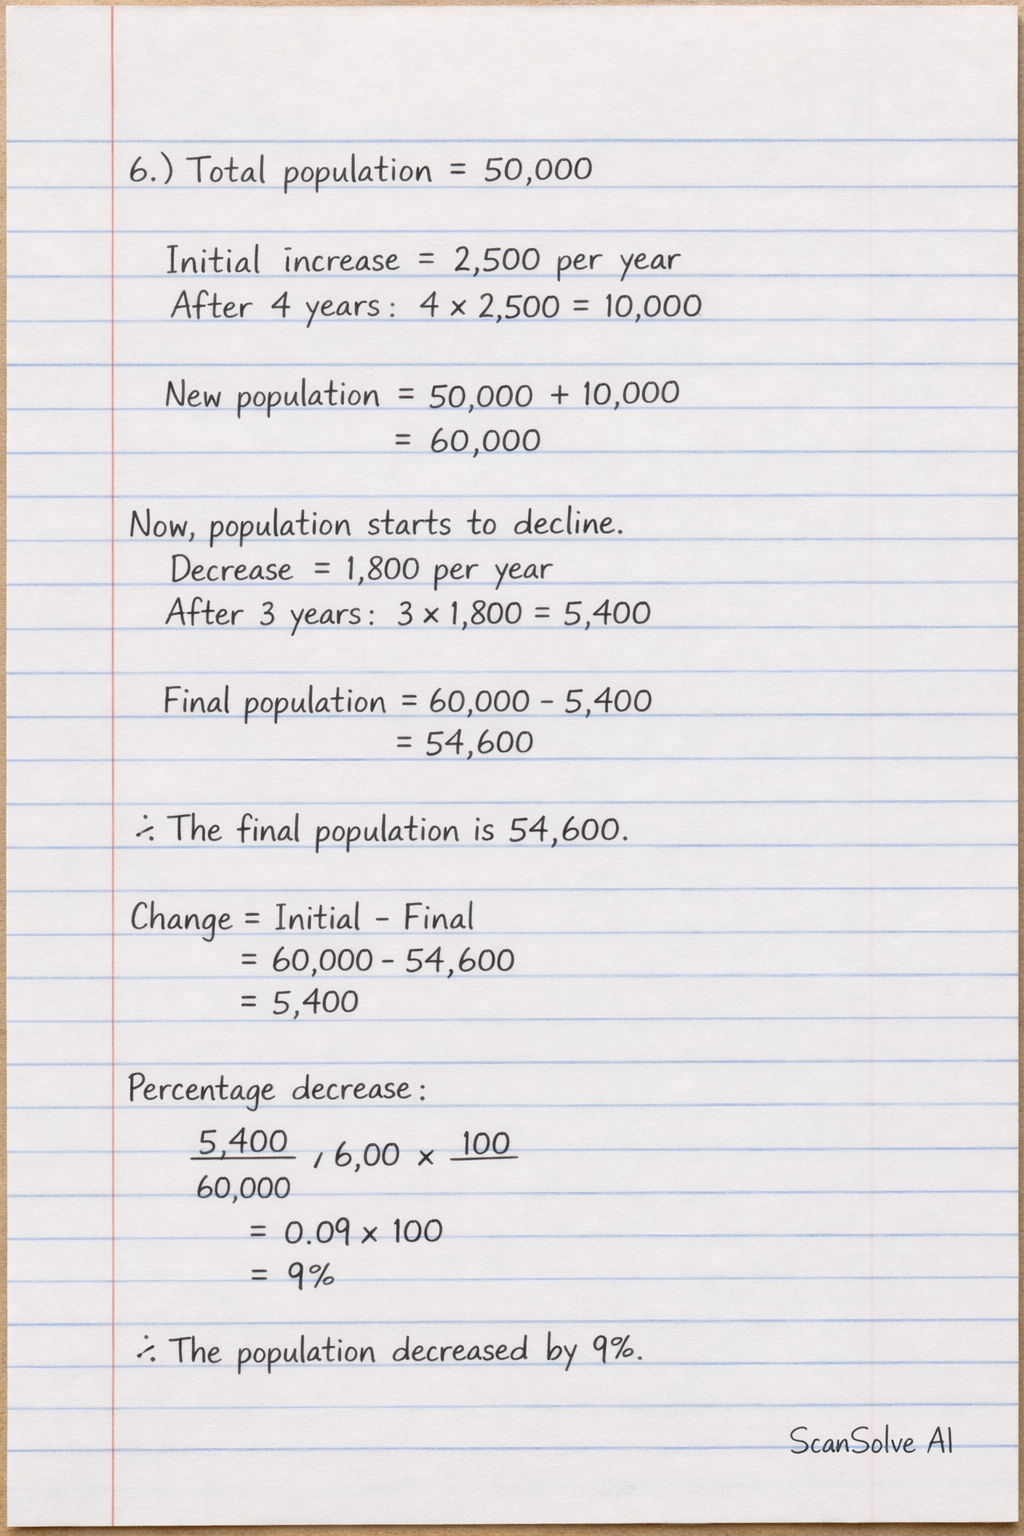 6.) Total population = 50,000
Initial increase = 2,500 per year
After 4 years: 4 × 2,500 = 10,000
New population = 50,000 + 10,000
= 60,000
Now, population starts to decline.
Decrease = 1,800 per year
After 3 years: 3 × 1,800 = 5,400
Final population = 60,000 - 5,400
= 54,600
∴ The final population is 54,600.
Change = Initial - Final
= 60,000 - 54,600
= 5,400
Percentage decrease:
5,400 / 6,00 × 100
60,000
= 0.09 × 100
= 9%
∴ The population decreased by 9%.
ScanSolve AI